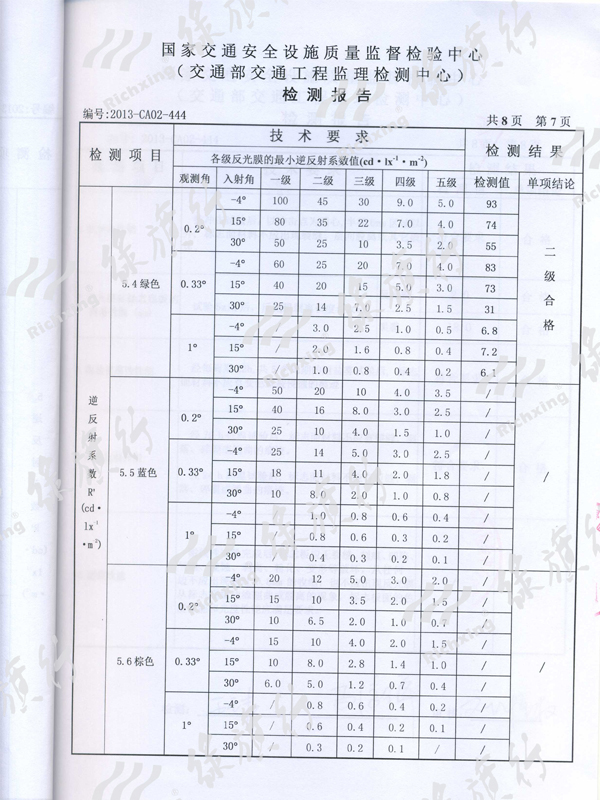 国家交通安全设施质量监督检验中心
（交通部交通工程监理检测中心）
检测报告
编号:2013-CA02-444 共8页 第7页
检测项目 技术要求 检测结果
各级反光膜的最小逆反射系数值(cd·lx⁻¹·m⁻²)
观测角 入射角 一级 二级 三级 四级 五级 检测值 单项结论
逆反射系数R'(cd·lx⁻¹·m⁻²)
5.4绿色 二级合格
0.2° -4° 100 45 30 9.0 5.0 93
15° 80 35 22 7.0 4.0 74
30° 50 25 10 3.5 2.0 55
0.33° -4° 60 25 20 7.0 4.0 83
15° 40 20 15 5.0 3.0 73
30° 25 14 7.0 2.5 1.5 31
1° -4° / 3.0 2.5 1.0 0.5 6.8
15° / 2.0 1.6 0.8 0.4 7.2
30° / 1.0 0.8 0.4 0.2 6.1
5.5蓝色 /
0.2° -4° 50 20 10 4.0 3.5 /
15° 40 16 8.0 3.0 2.5 /
30° 25 10 4.0 1.5 1.0 /
0.33° -4° 25 14 5.0 3.0 2.5 /
15° 18 11 4.0 2.0 1.8 /
30° 10 8.0 2.0 1.0 0.8 /
1° -4° / 1.0 0.8 0.6 0.4 /
15° / 0.8 0.6 0.3 0.2 /
30° / 0.4 0.3 0.2 0.1 /
5.6棕色 /
0.2° -4° 20 12 5.0 3.0 2.0 /
15° 15 10 3.5 2.0 1.5 /
30° 10 6.5 2.0 1.0 0.7 /
0.33° -4° 15 10 4.0 2.0 1.5 /
15° 10 8.0 2.8 1.4 1.0 /
30° 6.0 5.0 1.2 0.7 0.4 /
1° -4° / 0.8 0.6 0.4 0.2 /
15° / 0.6 0.4 0.2 0.1 /
30° / 0.3 0.2 0.1 / /
绿旗行
Richxing